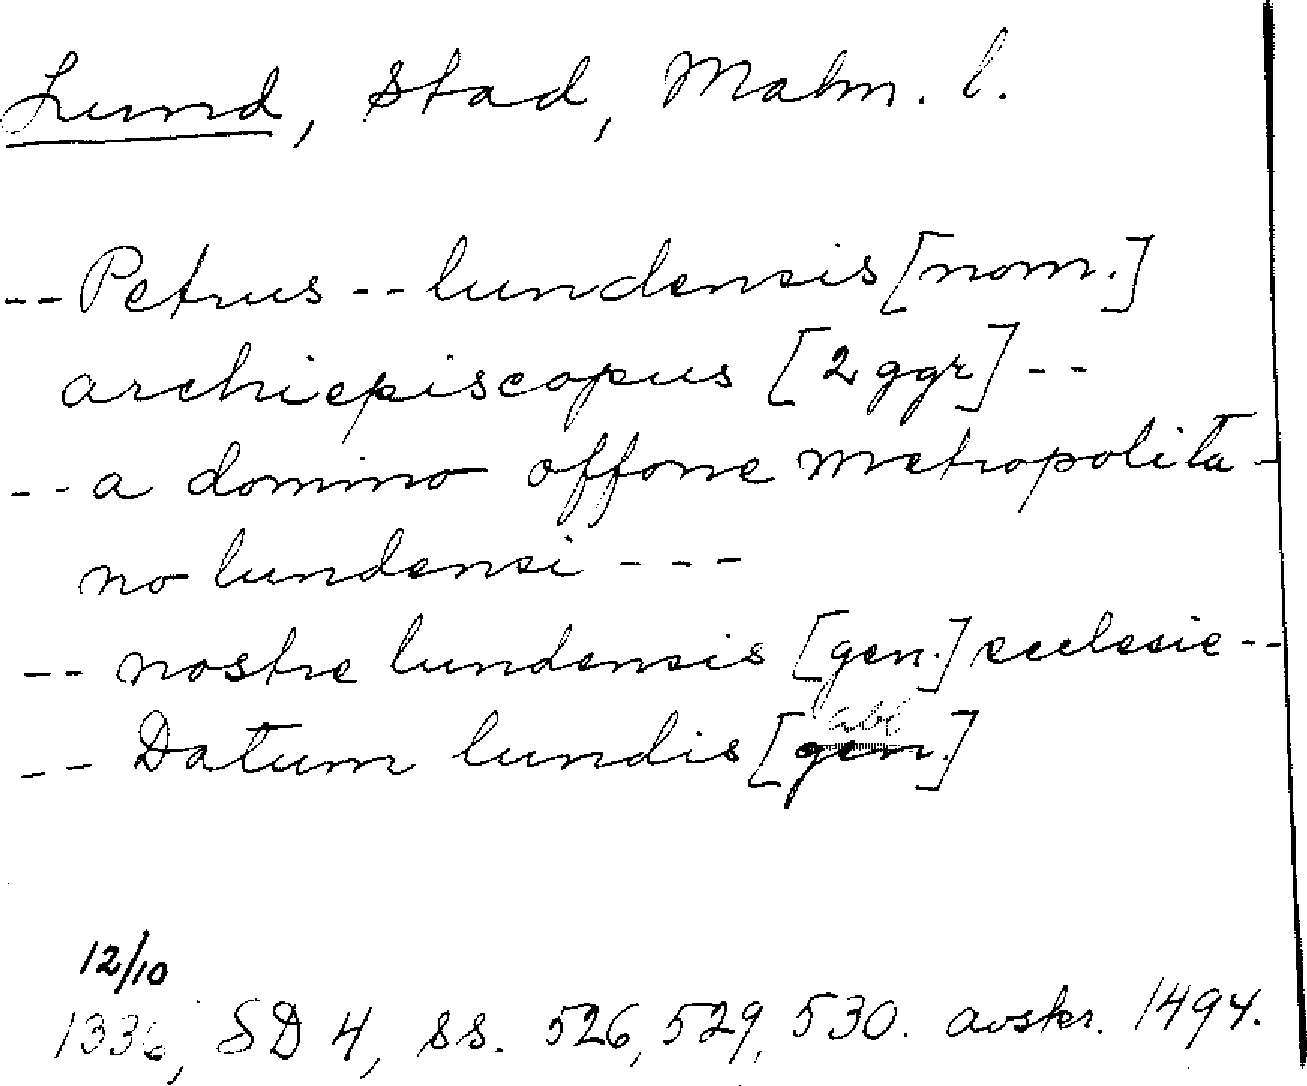 Lund, stad, Malm. l.
-- Petrus -- lundensis [nom.]
archiepiscopus [2 ggr] --
-- a domino offone metropolita-
no lundensi ---
-- nostre lundensis [gen.] ecclesie --
abl
-- Datum lundis [gen.]
12/10
1336, SD 4, ss. 526, 529, 530. avskr. 1494.